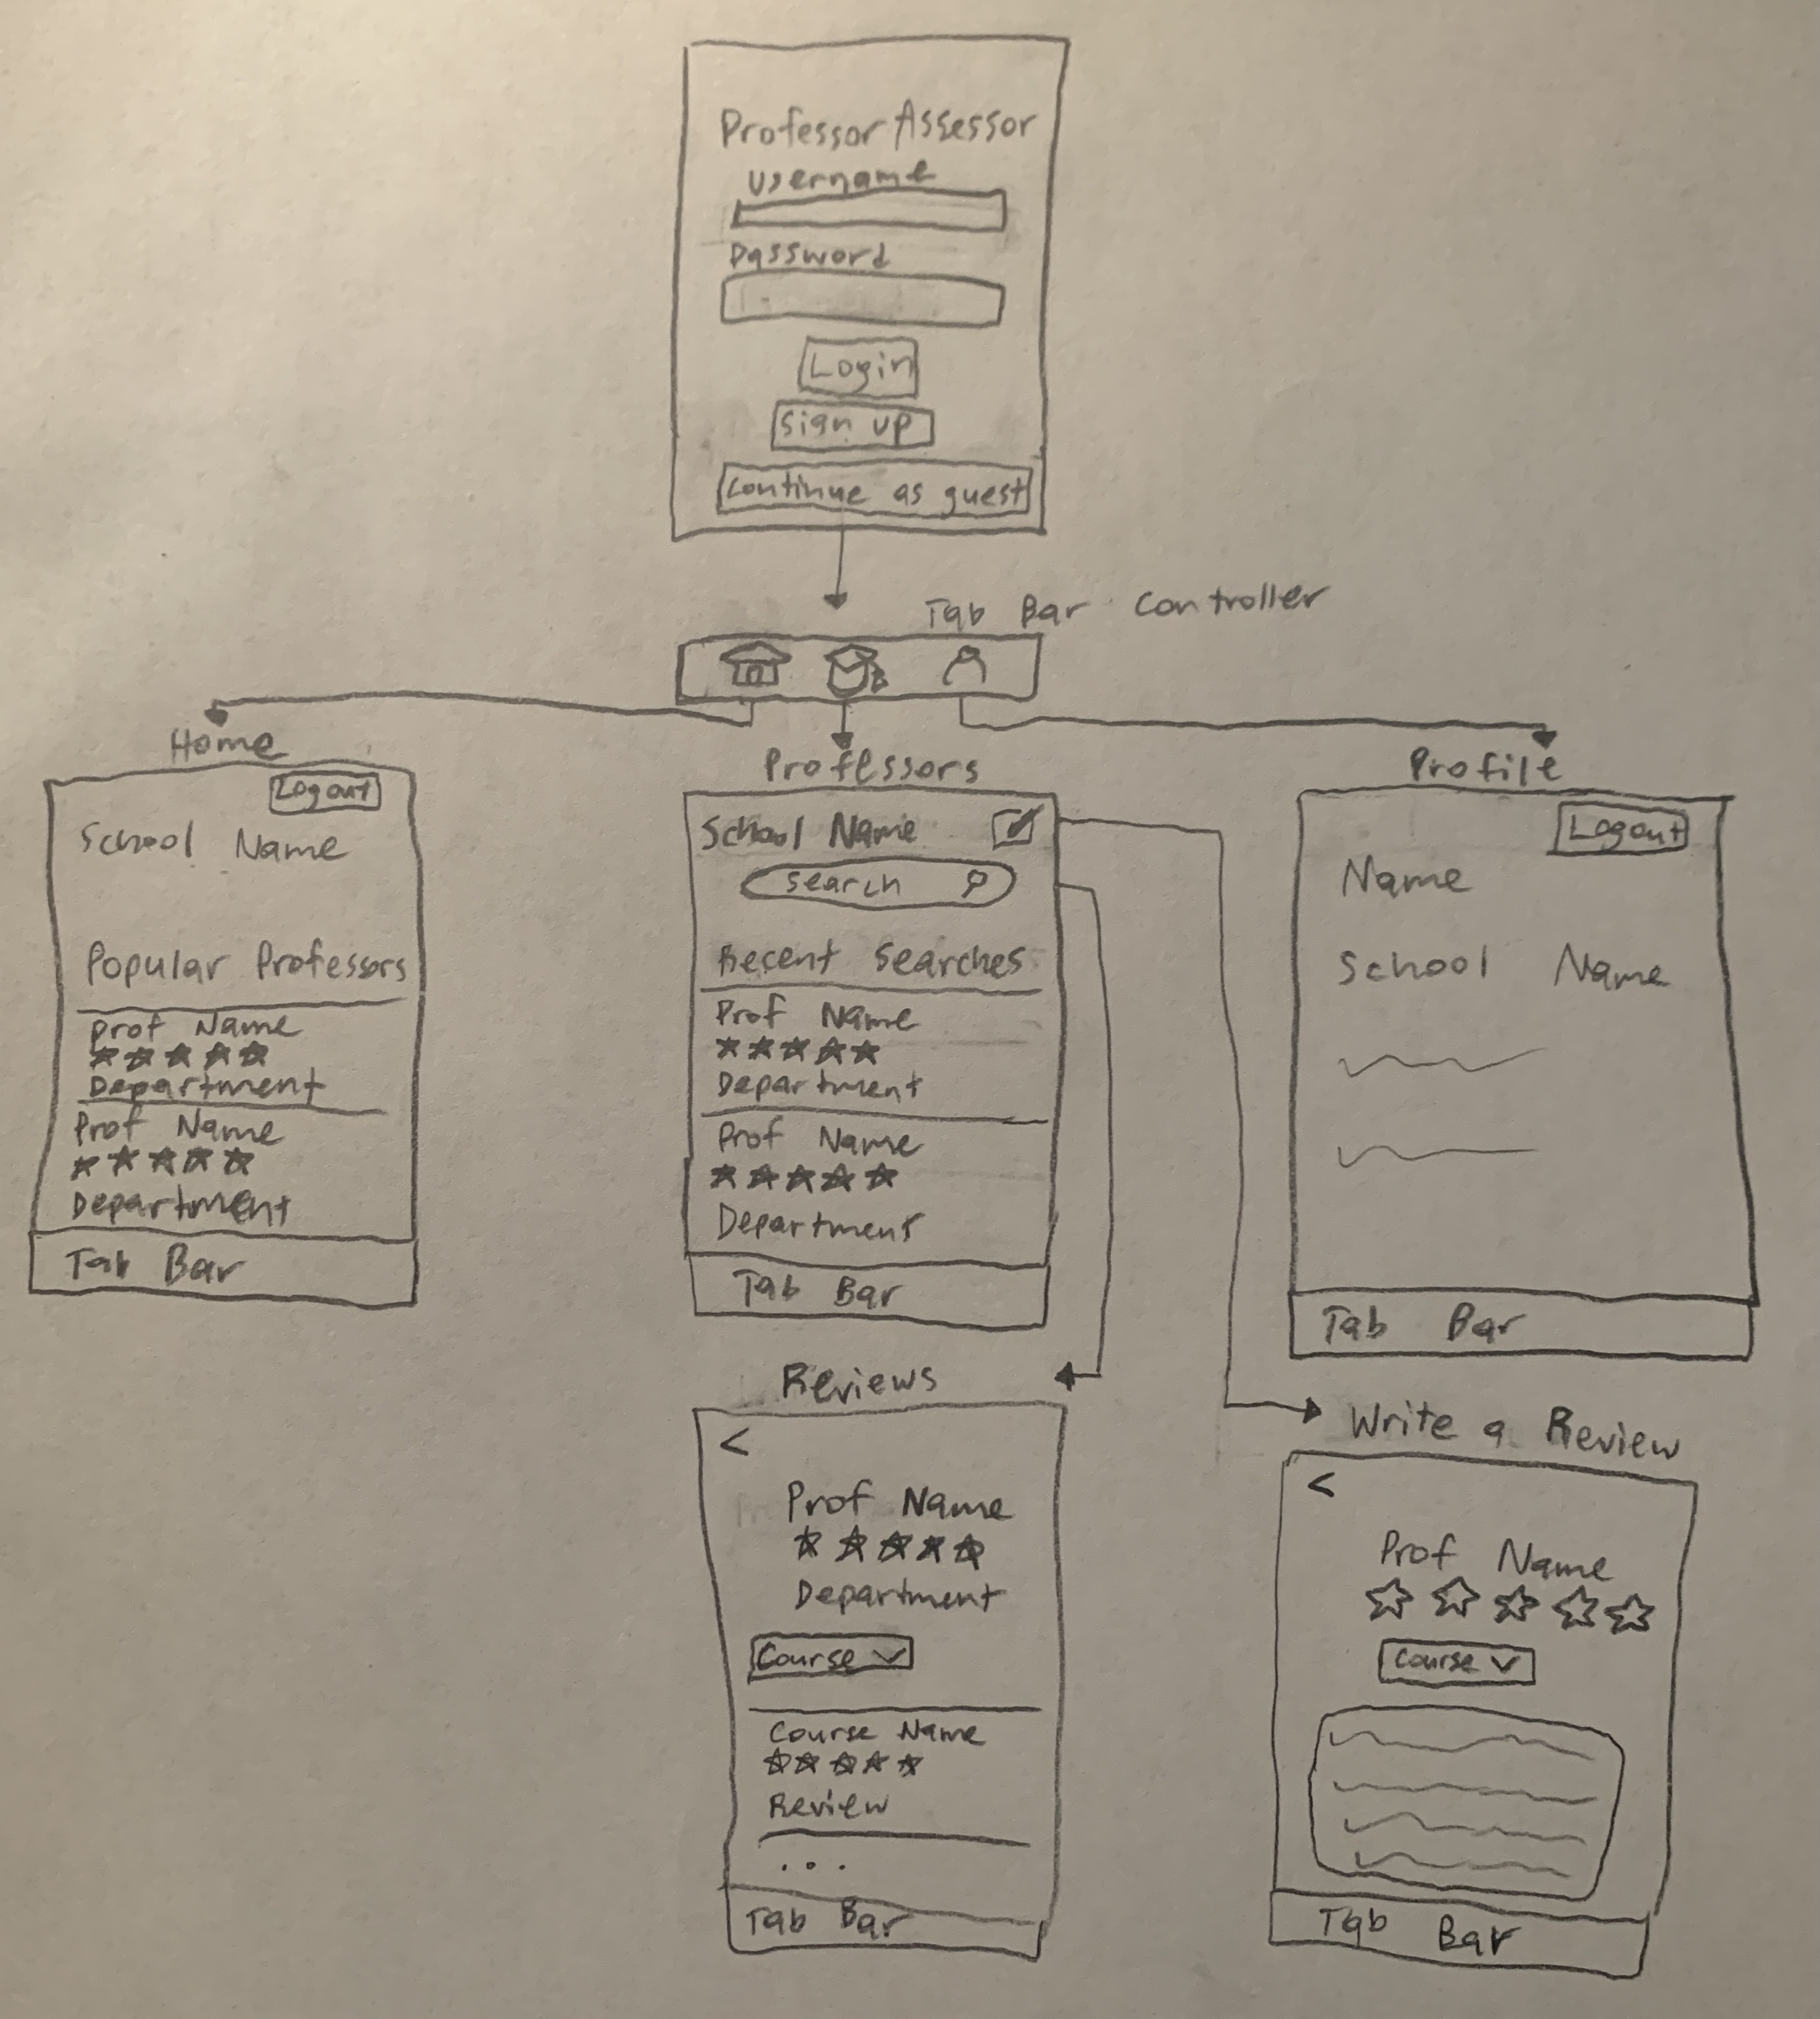 Professor Assessor
Username
Password
Login
Sign up
Continue as guest
Tab Bar Controller
Home
Logout
School Name
Popular Professors
Prof Name
Department
Prof Name
Department
Tab Bar
Professors
School Name
Search
Recent Searches
Prof Name
Department
Prof Name
Department
Tab Bar
Profile
Logout
Name
School Name
Tab Bar
Reviews
<
Prof Name
Department
Course
Course Name
Review
...
Tab Bar
Write a Review
<
Prof Name
Course
Tab Bar